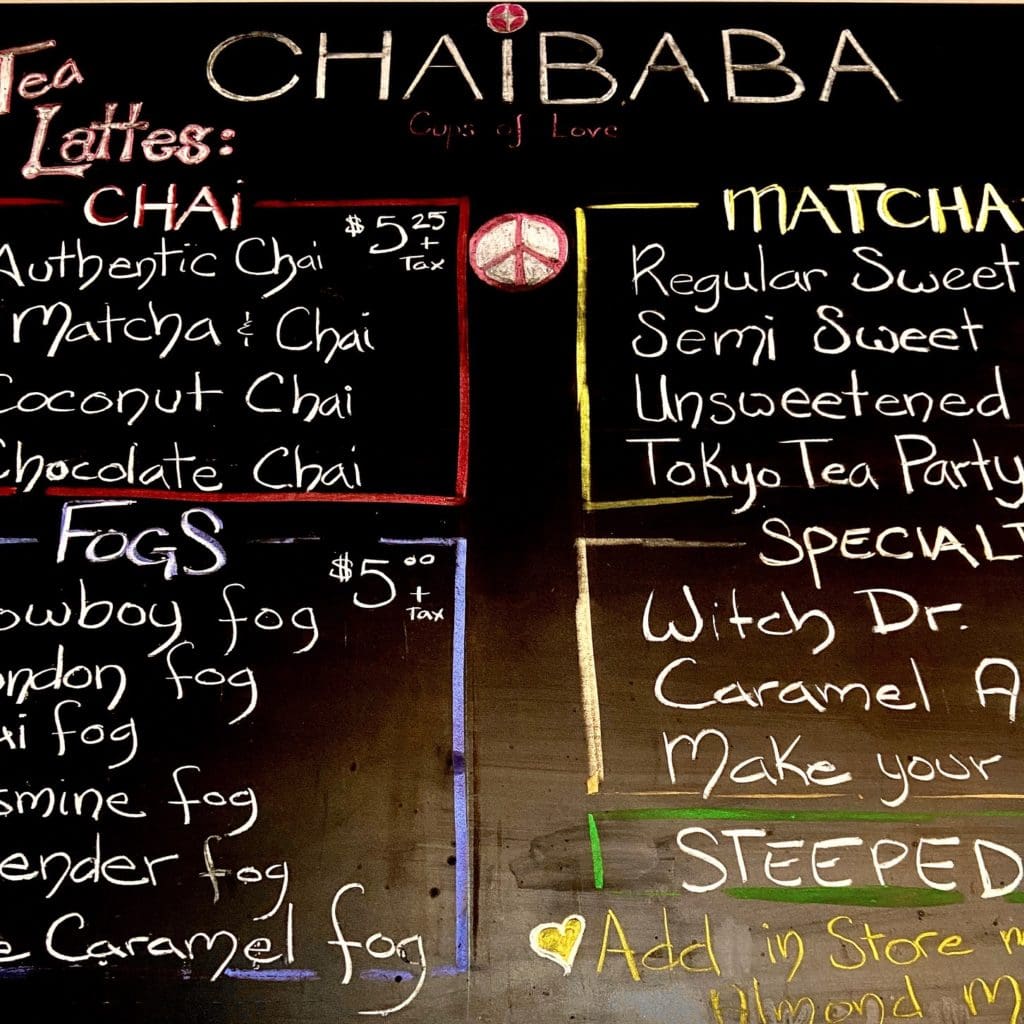 CHAiBABA
Cups of Love
Tea
Lattes:
CHAi
$5.25
+
Tax
Authentic Chai
Matcha & Chai
Coconut Chai
Chocolate Chai
FOGS
$5.00
+
Tax
owboy fog
ondon fog
ai fog
smine fog
ender fog
e Caramel fog
MATCHA
Regular Sweet
Semi Sweet
Unsweetened
Tokyo Tea Party
SPECIALT
Witch Dr.
Caramel A
Make your
STEEPED
Add in Store m
Almond M